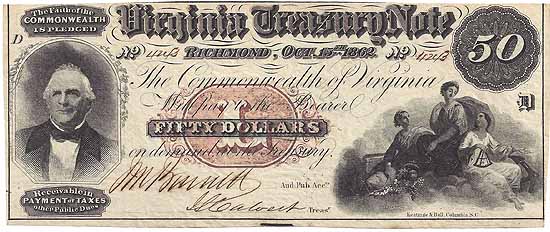 The Faith of the
COMMONWEALTH
IS PLEDGED
Virginia Treasury Note
D
No
RICHMOND, OCT. 15TH 1862.
No
50
The Commonwealth of Virginia
Will pay to the Bearer
FIFTY DOLLARS
on demand at the Treasury.
D
Aud. Pub. Acc.ts
Treas.r
Receivable in
PAYMENT of TAXES
other Public Dues
Keatinge & Ball, Columbia S.C.